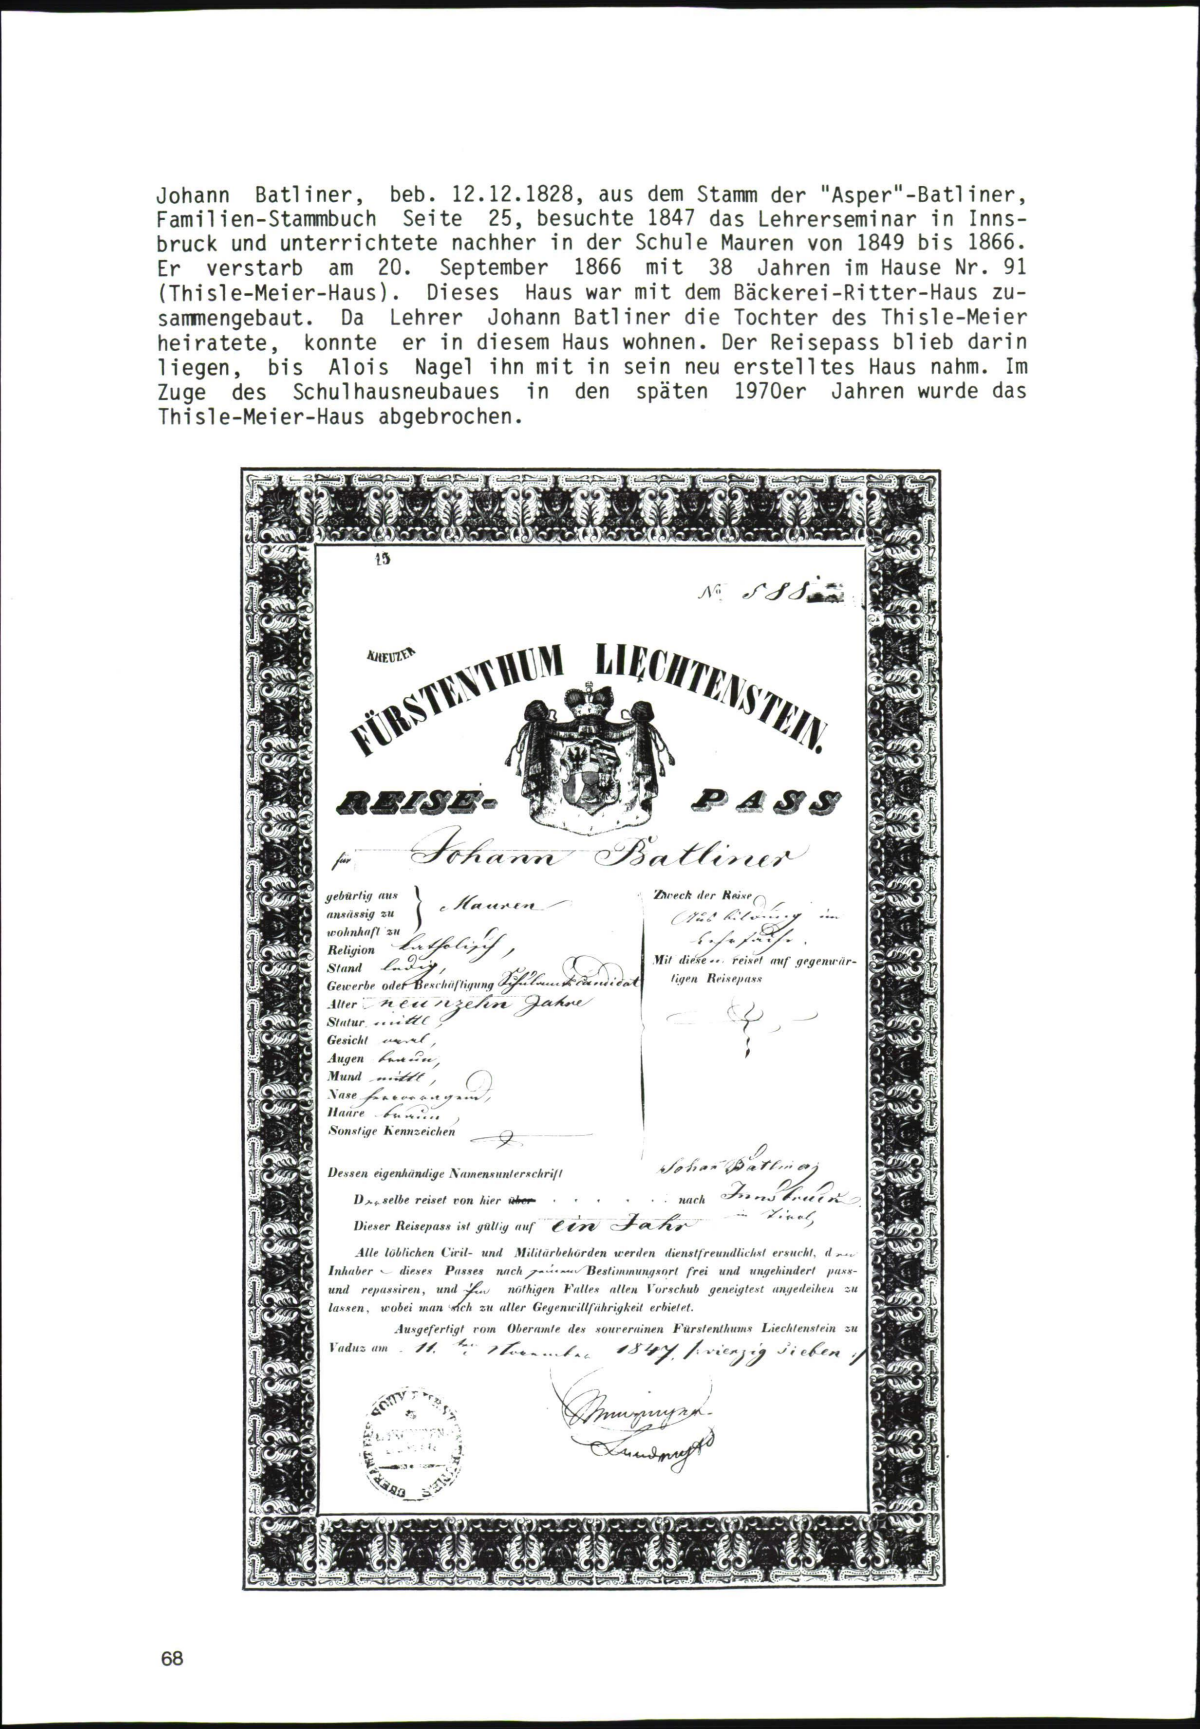 Johann Batliner, beb. 12.12.1828, aus dem Stamm der "Asper"-Batliner,
Familien-Stammbuch Seite 25, besuchte 1847 das Lehrerseminar in Inns-
bruck und unterrichtete nachher in der Schule Mauren von 1849 bis 1866.
Er verstarb am 20. September 1866 mit 38 Jahren im Hause Nr. 91
(Thisle-Meier-Haus). Dieses Haus war mit dem Bäckerei-Ritter-Haus zu-
sammengebaut. Da Lehrer Johann Batliner die Tochter des Thisle-Meier
heiratete, konnte er in diesem Haus wohnen. Der Reisepass blieb darin
liegen, bis Alois Nagel ihn mit in sein neu erstelltes Haus nahm. Im
Zuge des Schulhausneubaues in den späten 1970er Jahren wurde das
Thisle-Meier-Haus abgebrochen.
15
No. 588
KREUZER
FÜRSTENTHUM LIECHTENSTEIN.
REISE-PASS
für Johann Batliner
gebürtig aus
ansässig zu Mauren
wohnhaft zu
Religion katholisch,
Stand ledig,
Gewerbe oder Beschäftigung Schulamtskandidat
Alter neunzehn Jahre
Statur mittl,
Gesicht oval,
Augen braun,
Mund mittl,
Nase hervorragend,
Haare braun,
Sonstige Kennzeichen
Zweck der Reise
Ausbildung im
Lehrfache.
Mit diesem reiset auf gegenwär-
tigen Reisepass
Dessen eigenhändige Namensunterschrift Johan Batliner
Derselbe reiset von hier über . . . . . . nach Innsbruck
in Tirol,
Dieser Reisepass ist gültig auf ein Jahr
Alle löblichen Civil- und Militärbehörden werden dienstfreundlichst ersucht, den
Inhaber dieses Passes nach seinem Bestimmungsort frei und ungehindert pass-
und repassiren, und ihm nöthigen Falles allen Vorschub geneigtest angedeihen zu
lassen, wobei man sich zu aller Gegenwillfährigkeit erbietet.
Ausgefertigt vom Oberamte des souverainen Fürstenthums Liechtenstein zu
Vaduz am 11. ten November 1847, vierzig sieben
68